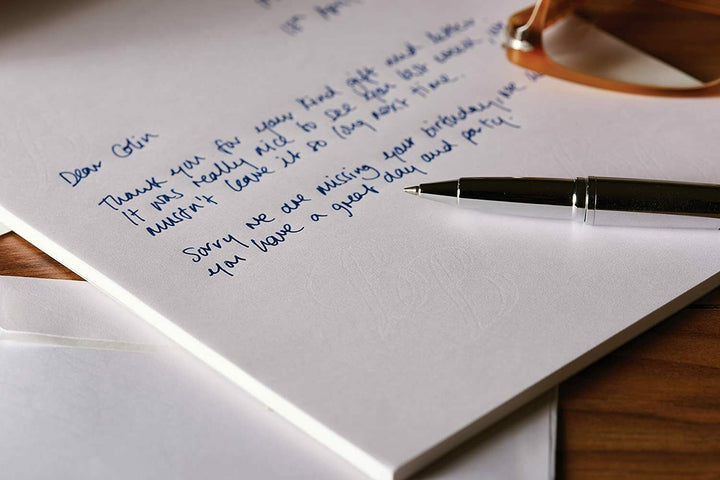 18th April
Dear Colin
Thank you for your kind gift and letter
It was really nice to see you last week
mustn't leave it so long next time.
Sorry we are missing your birthday, we
you have a great day and party.